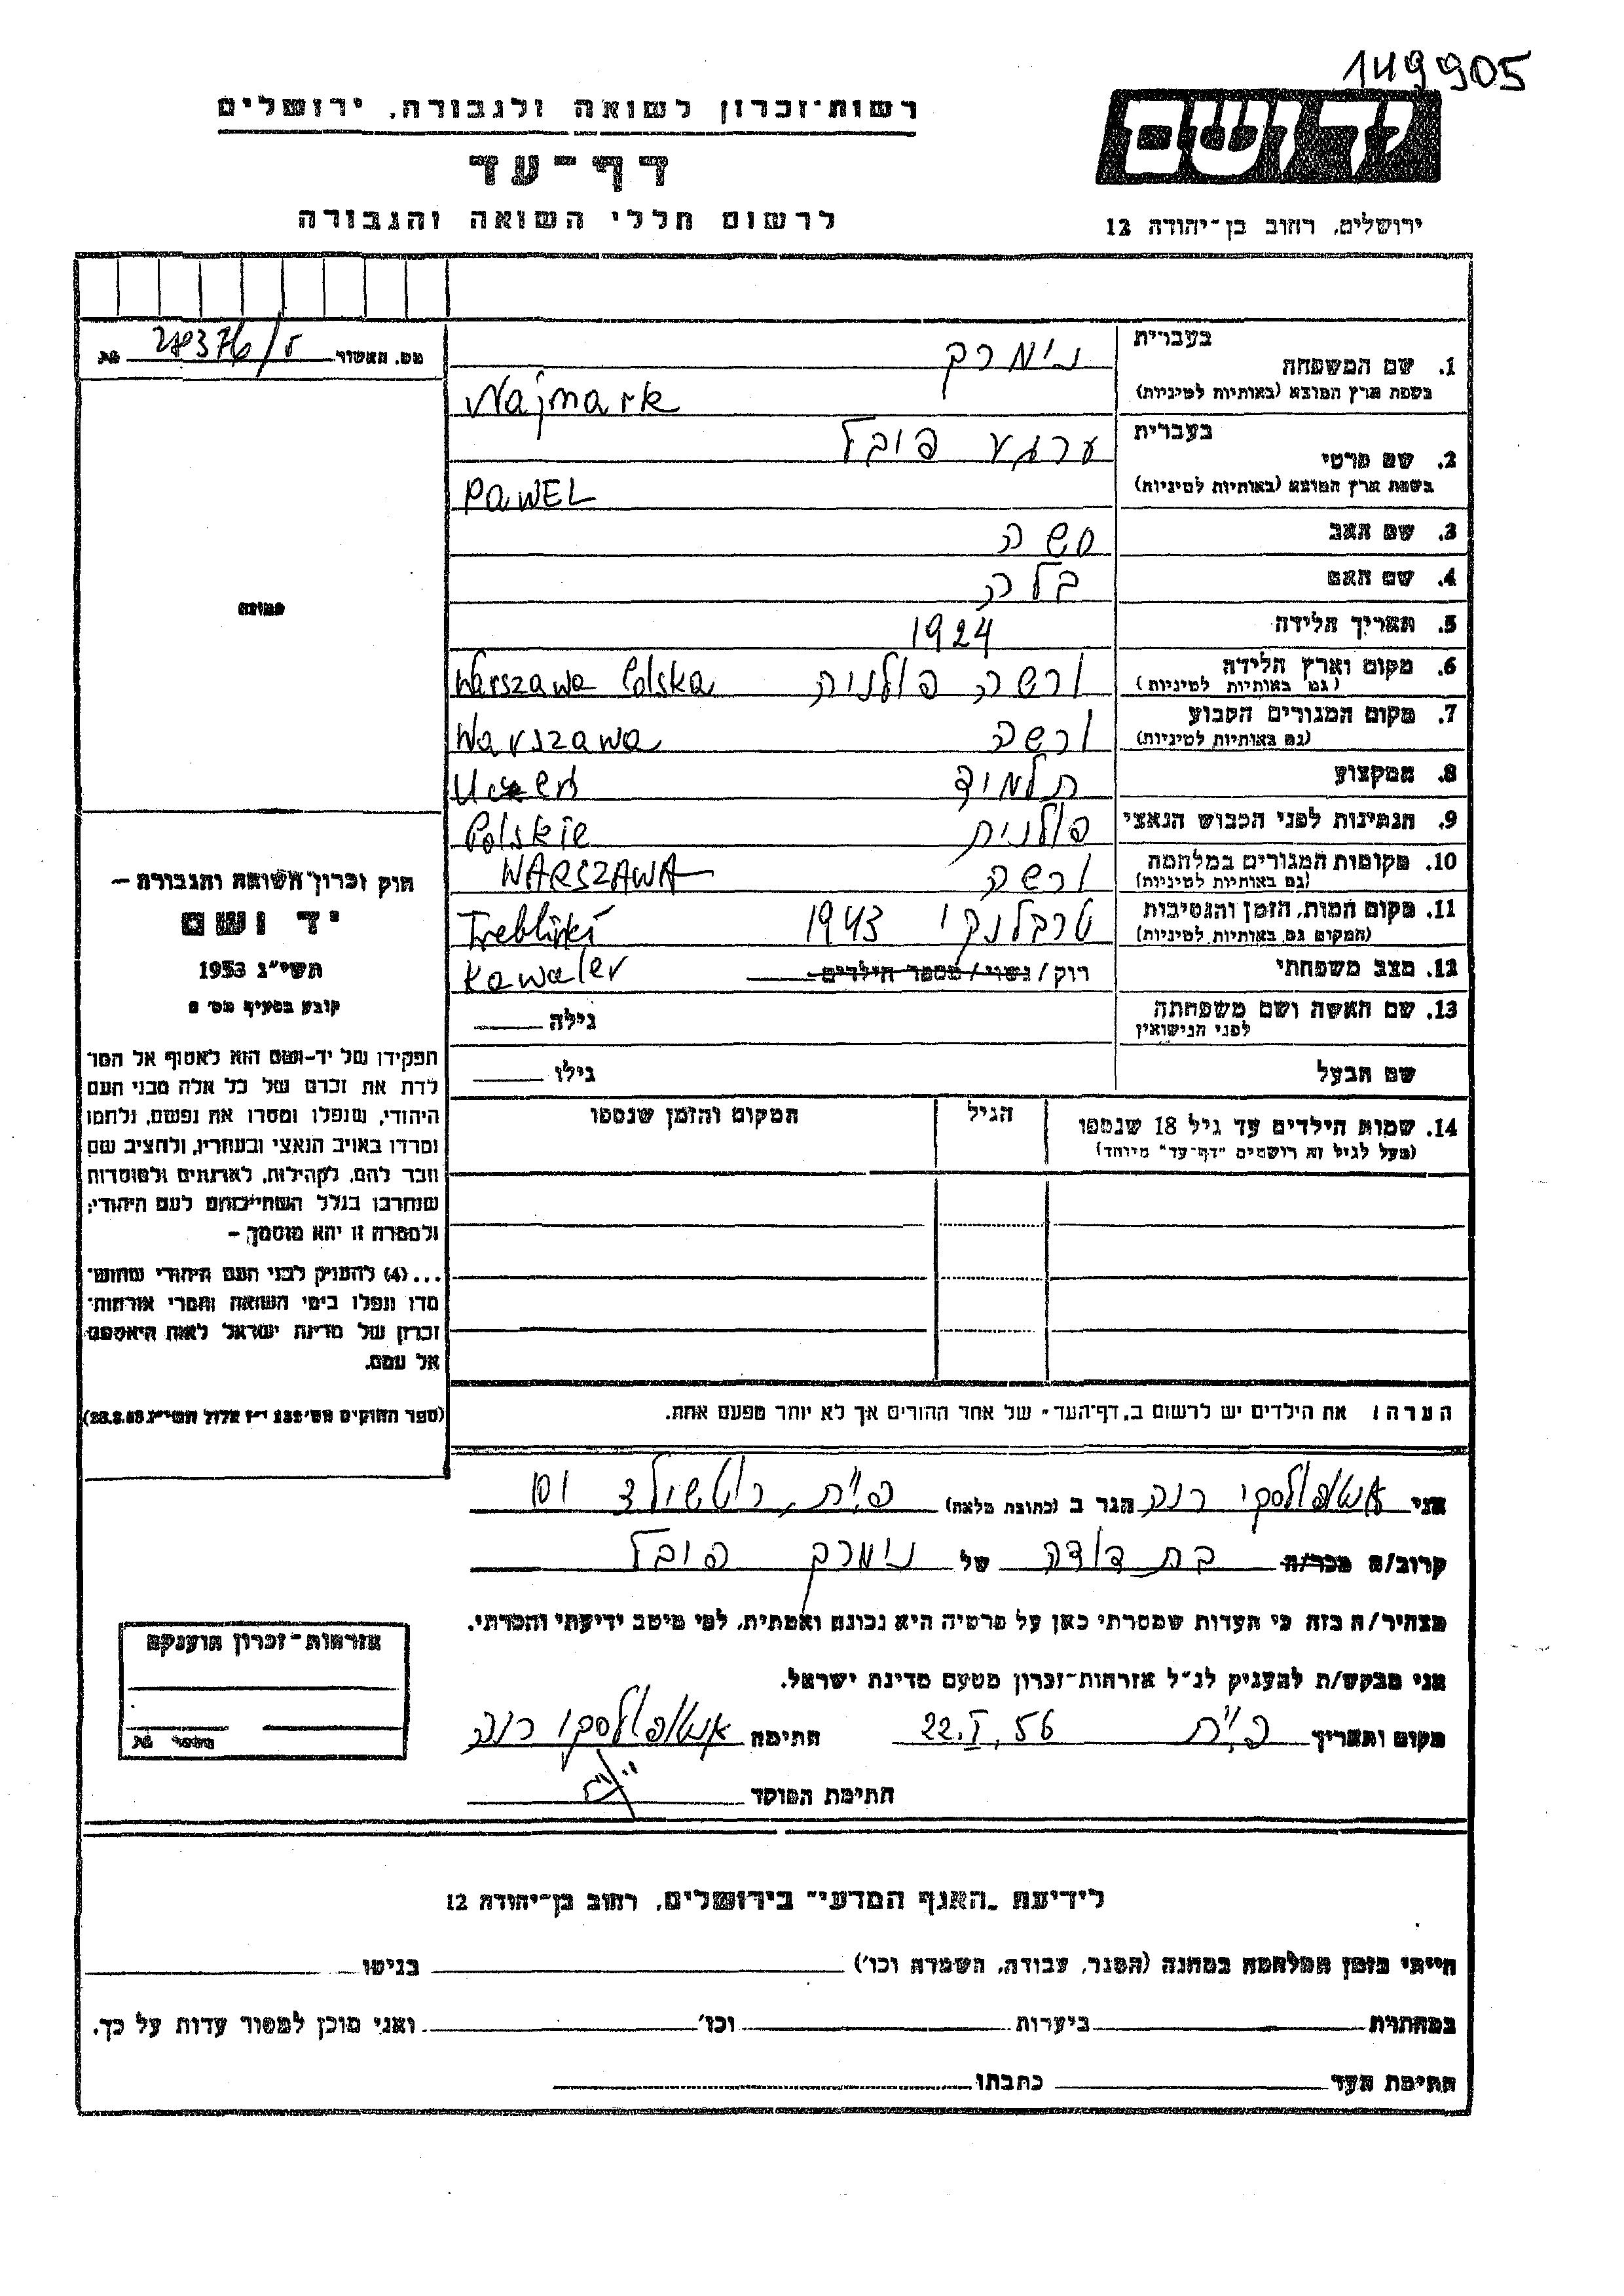 149905
רשות־זכרון לשואה ולגבורה, ירושלים
דף־עד
לרשום חללי השואה והגבורה
יד ושם
ירושלים, רחוב בן־יהודה 12
מס. האשור
בעברית
1. שם המשפחה
בשפת ארץ המוצא (באותיות לטיניות)
נימרק
Najmark
בעברית
2. שם פרטי
בשפת ארץ המוצא (באותיות לטיניות)
פובל
PAWEL
3. שם האב
משה
4. שם האם
בלה
5. תאריך הלידה
1924
6. מקום וארץ הלידה
(גם באותיות לטיניות)
ורשה פולניה
Warszawa Polska
7. מקום המגורים הקבוע
(גם באותיות לטיניות)
ורשה
Warszawa
8. המקצוע
תלמיד
Uczeń
9. הנתינות לפני הכבוש הנאצי
פולנית
Polskie
10. מקומות המגורים במלחמה
(גם באותיות לטיניות)
ורשה
WARSZAWA
11. מקום המות, הזמן והנסיבות
(המקום גם באותיות לטיניות)
טרבלנקי 1943
Treblinki
12. מצב משפחתי
רוק/נשוי/מספר הילדים
Kawaler
13. שם האשה ושם משפחתה
לפני הנישואין
גילה
שם הבעל
גילו
14. שמות הילדים עד גיל 18 שנספו
(מעל לגיל זה רושמים "דף־עד" מיוחד)
הגיל
המקום והזמן שנספו
הערה: את הילדים יש לרשום ב„דף־העד" של אחד ההורים אך לא יותר מפעם אחת.
תמונה
חוק זכרון השואה והגבורה –
יד ושם
תשי"ג 1953
קובע בסעיף מס׳
תפקידו של יד־ושם הוא לאסוף אל המו־
לדת את זכרם של כל אלה מבני העם
היהודי, שנפלו ומסרו את נפשם, נלחמו
ומרדו באויב הנאצי ובעוזריו, ולהציב שם
וזכר להם, לקהילות, לארגונים ולמוסדות
שנחרבו בגלל השתייכותם לעם היהודי;
ולמטרה זו יהא מוסמך –
...(4) להעניק לבני העם היהודי שהוש־
מדו ונפלו בימי השואה והמרי אזרחות־
זכרון של מדינת ישראל לאות היאספם
אל עמם.
אני רנה הגר ב (כתובת מלאה) פ"ת, רוטשילד 101
קרוב/ה מכר/ה בת דודה של נימרק פובל
מצהיר/ה בזה כי העדות שמסרתי כאן על פרטיה היא נכונה ואמתית, לפי מיטב ידיעתי והכרתי.
אני מבקש/ת להעניק לנ"ל אזרחות־זכרון מטעם מדינת ישראל.
מקום ותאריך פ"ת 22.I.56 חתימה רנה
חתימת הפוקד
אזרחות־זכרון הוענקה
מספר
לידיעת „האגף המדעי" בירושלים, רחוב בן־יהודה 12
הייתי בזמן המלחמה במחנה (הסגר, עבודה, השמדה וכו׳) בגיטו
במחתרת ביערות וכו׳ ואני מוכן למסור עדות על כך.
חתימת העד כתבתו